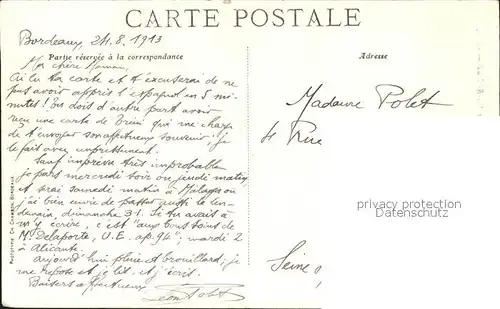 CARTE POSTALE
Bordeaux, 24.8.1913
Partie réservée à la correspondance
Adresse
Ma chère Maman,
Ai lu ta carte et t'excuserai de ne
pas avoir appris l'espagnol en 5 mi-
nutes! Tu dois d'autre part avoir
reçu une carte de qui me charge
de t'envoyer son affectueux souvenir; je
le fait avec empressement.
Sauf imprévu très improbable
je pars mercredi soir ou jeudi matin,
et serai samedi matin à Malaga où
j'ai bien envie de passer aussi le len-
demain, dimanche 31. Si tu avais à
m'y écrire, c'est "aux bons soins de
Mr Delaporte, U.E. ap. 94"; mardi 2
à Alicante.
aujourd'hui pluie et brouillard; je
me repose et je lis et j'écris.
Baisers affectueux
Léon Polet
Madame Polet
4 Rue
Seine
privacy protection
variable
Bordeaux